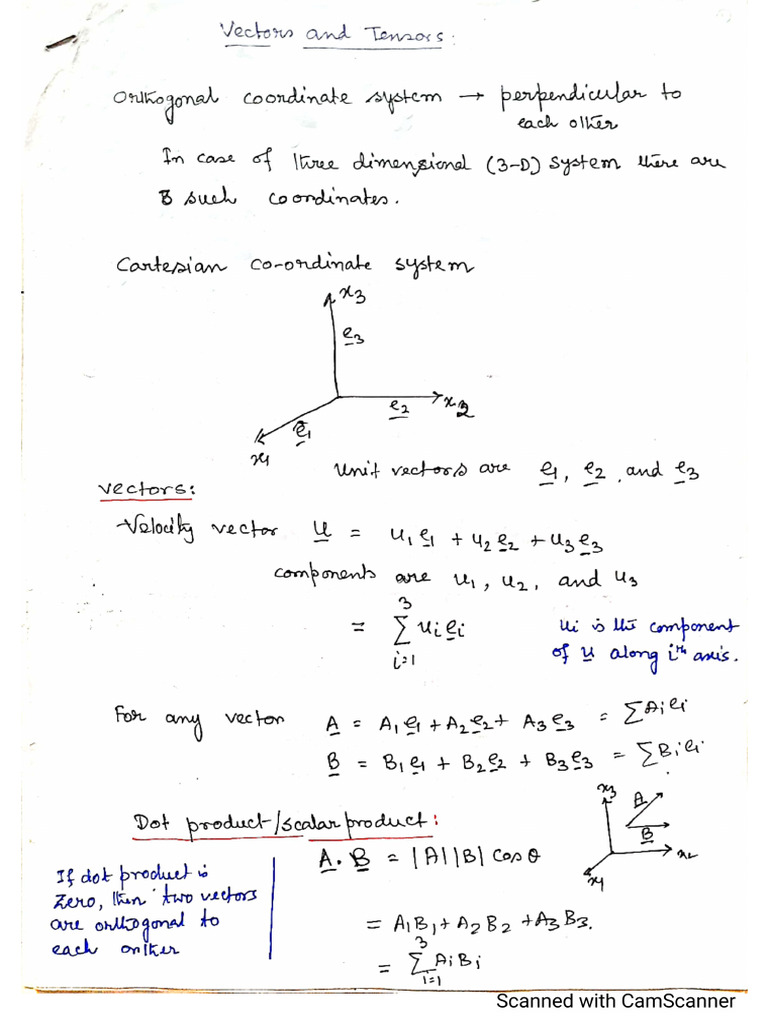 Vectors and Tensors:
Orthogonal coordinate system → perpendicular to
each other
In case of three dimensional (3-D) system there are
3 such coordinates.
Cartesian co-ordinate system
x3
e3
e2 x2
e1
x1
Unit vectors are e1, e2, and e3
vectors:
Velocity vector u = u1e1 + u2e2 + u3e3
components are u1, u2, and u3
= 3∑i=1 uiei
ui is the component
of u along ith axis.
For any vector A = A1e1 + A2e2 + A3e3 = ∑Aiei
B = B1e1 + B2e2 + B3e3 = ∑Biei
Dot product/scalar product:
x3
A
B
x2
x1
A · B = |A||B| cos θ
If dot product is
zero, then two vectors
are orthogonal to
each onther
= A1B1 + A2B2 + A3B3.
= 3∑i=1 AiBi
Scanned with CamScanner